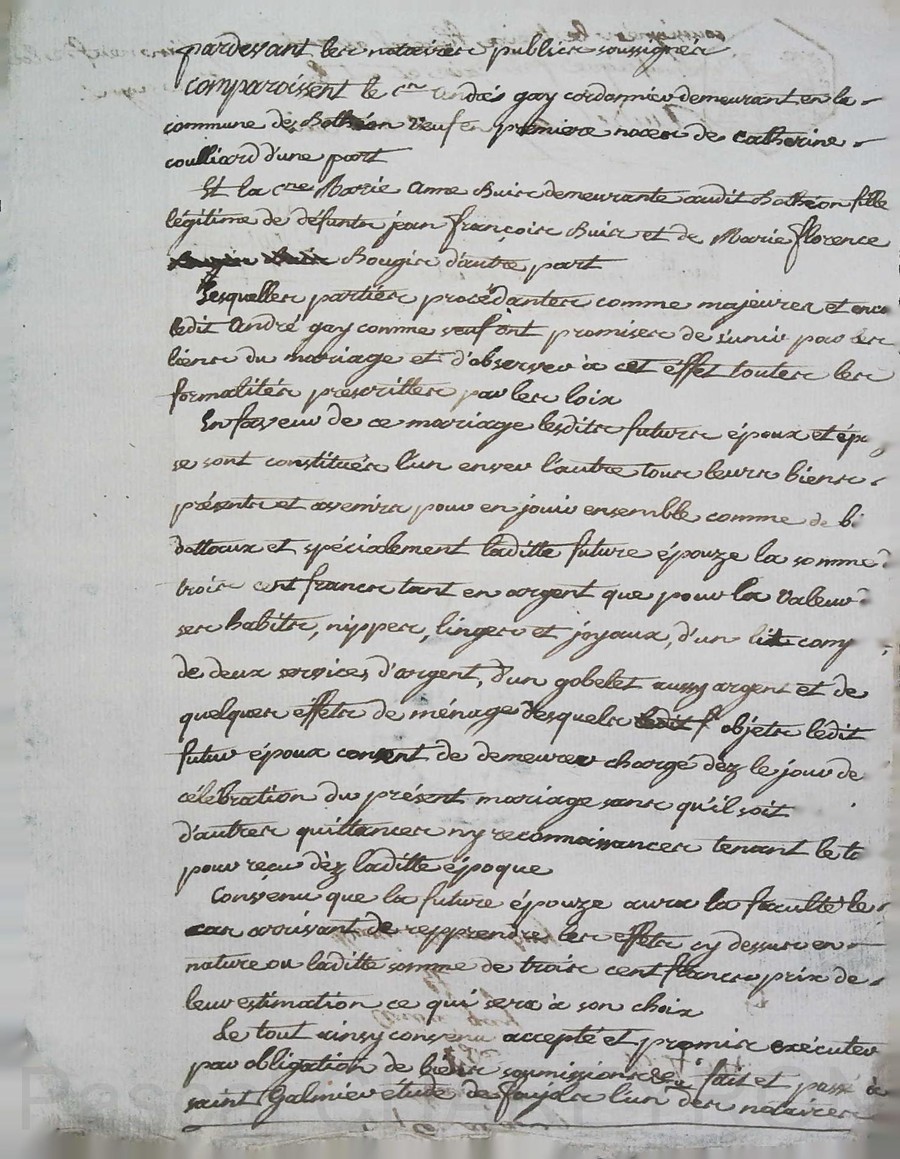 pardevant les notaires publics soussignés
comparoissent le cen andré gay cordonnier demeurant en la
commune de Bothéon veuf en premiere noces de catherine
coulliard d'une part
Et la cne Marie Anne Buis demeurante audit Bothéon fille
légitime de défunts jean françois Buis et de Marie florence
Bougis d'autre part
Lesquelles parties procédantes comme majeures et
ledit André gay comme veuf ont promises de s'unir par les
liens du mariage et d'observer à cet effet toutes les
formalités prescrittes par les loix
En faveur de ce mariage lesdits futurs époux et
se sont constitués l'un envers l'autre tous leurs biens
présents et avenirs pour en jouir ensemble comme de
dottaux et spécialement laditte future épouze la somme
trois cent francs tant en argent que pour la valeur
ses habits, nippes, linges et joyaux, d'un lit
de deux services d'argent, d'un gobelet aussy argent et de
quelques éffets de ménage desquels objets ledit
futur époux consent de demeurer chargé dèz le jour de
célébration du présent mariage sans qu'il soit
d'autres quittances ny reconnaissances tenant le
pour recu dèz laditte époque
Convenu que la future épouze aura la faculté le
cas arrivant de repprendre les effets cy dessus en
nature ou laditte somme de trois cent francs prix de
leur estimation ce qui sera à son choix
Le tout ainsy convenu accepté et promis exécuter
par obligation de biens soumissions fait et passé à
saint Galmier étude de foujols l'un des notaires